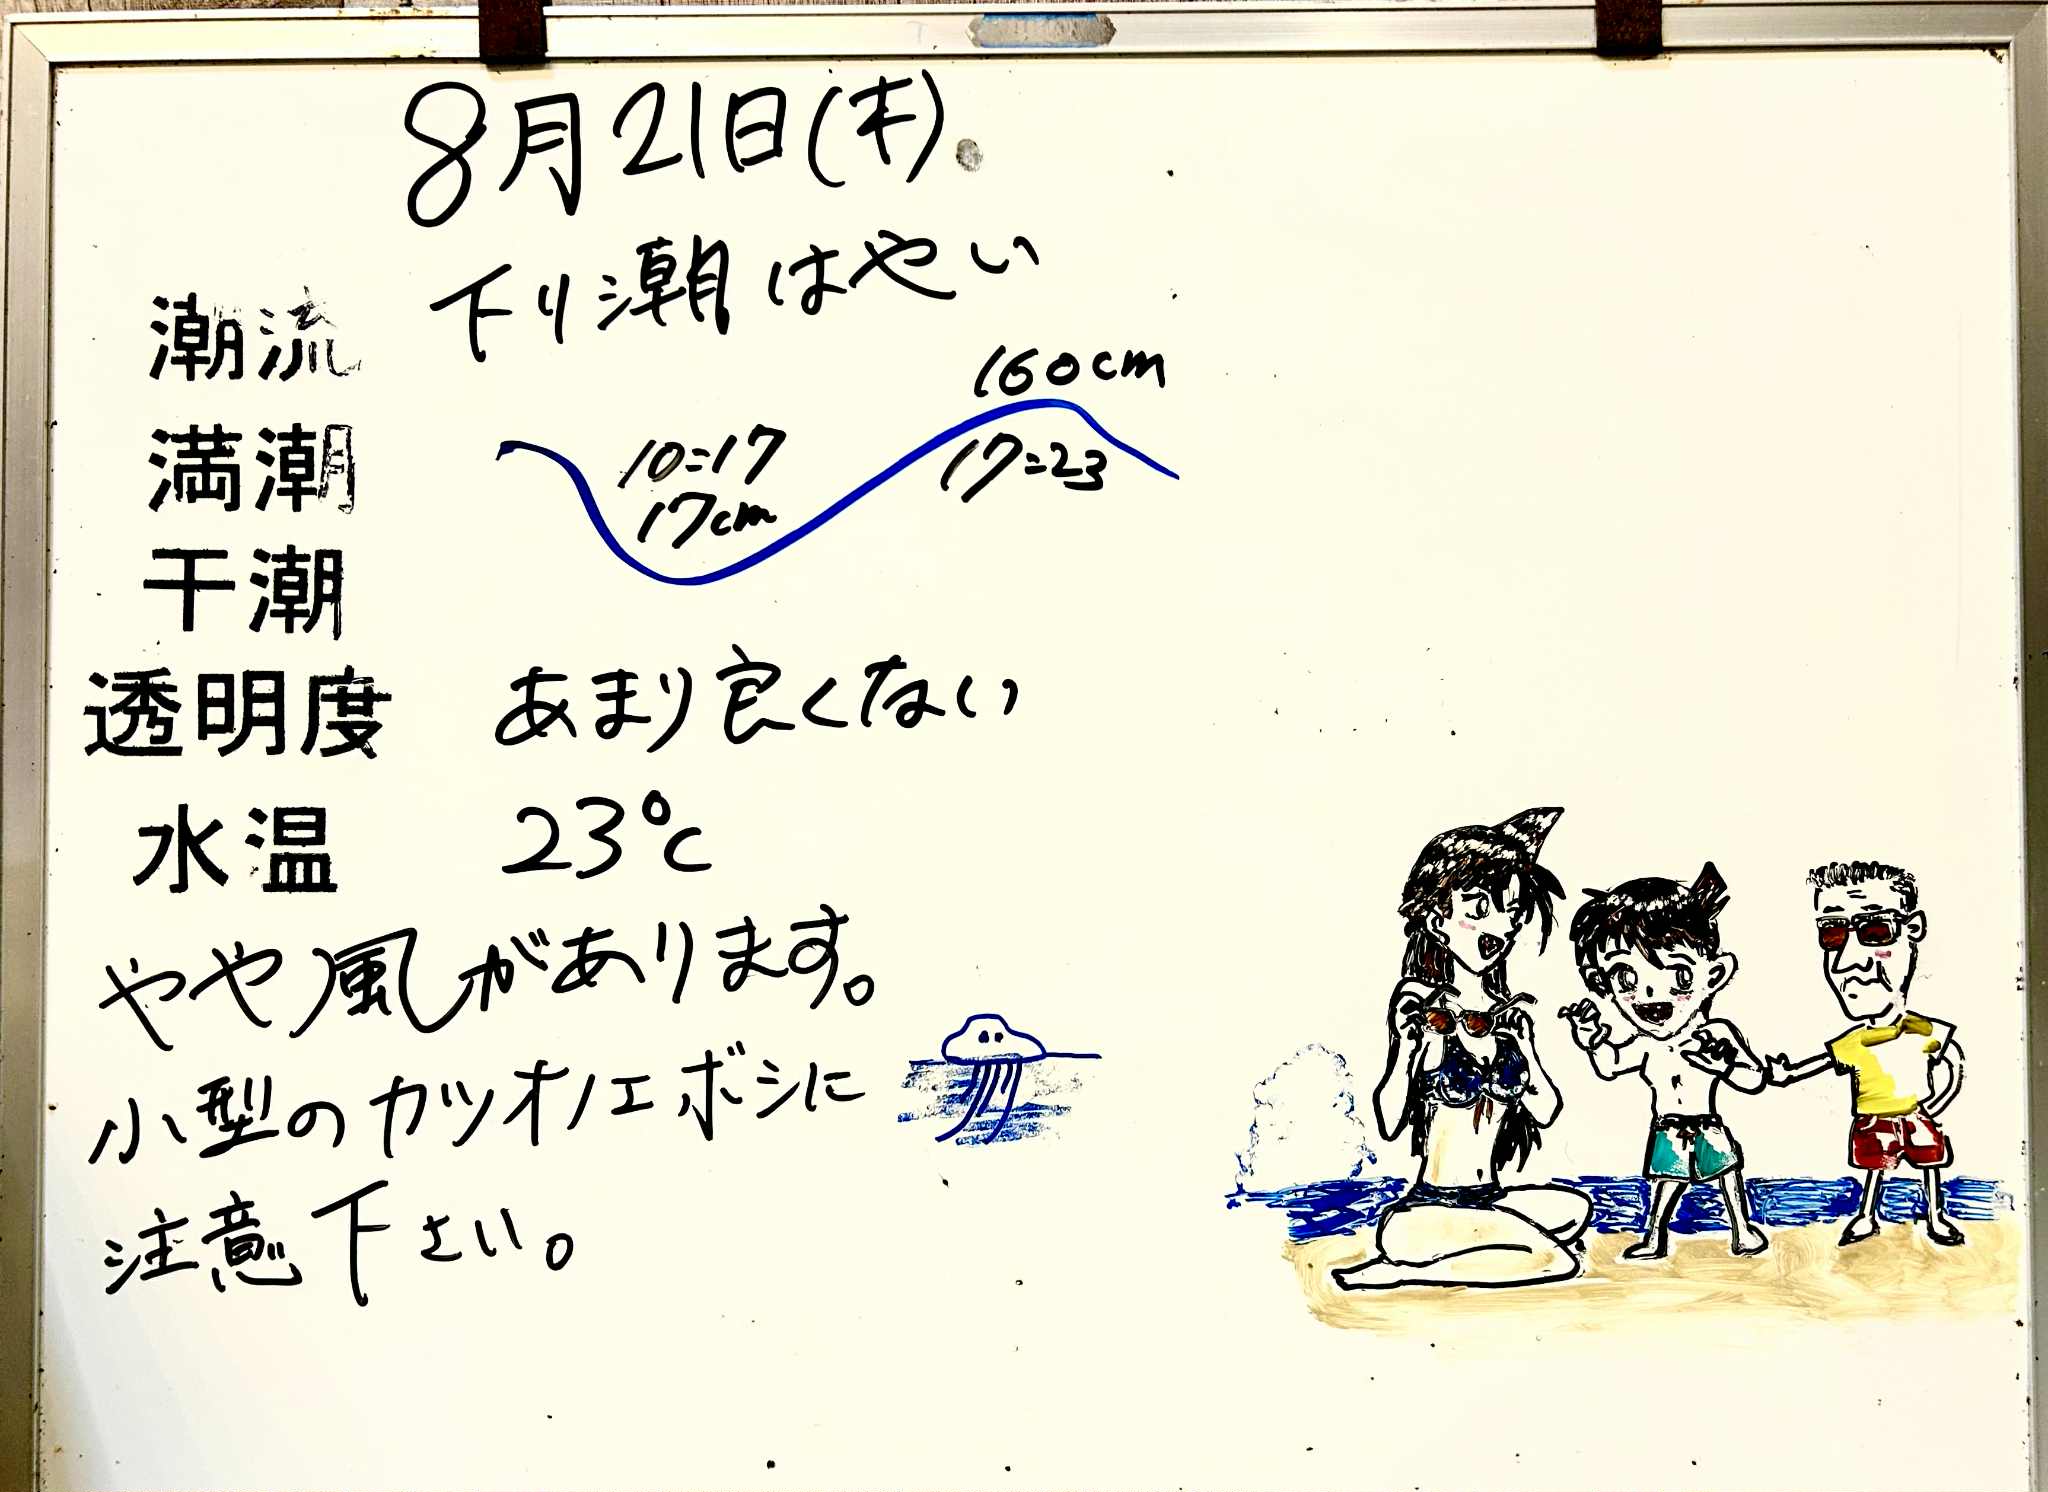 8月21日(木)
潮流 下り潮はやい
満潮 160cm
10:17 17:23
17cm
干潮
透明度 あまり良くない
水温 23℃
やや風があります。
小型のカツオノエボシに
注意下さい。